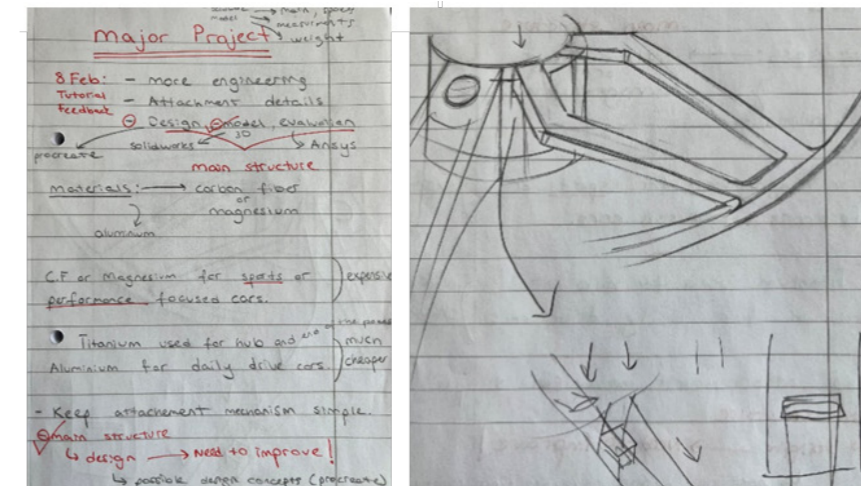 model → main, space
→ measurements
weight
Major Project
8 Feb: - more engineering
Tutorial - Attachment details
feedback Design, model, evaluation
3D
procreate solidworks Ansys
main structure
materials: → carbon fiber
or
magnesium
aluminum
C.F or Magnesium for sports or
performance focused cars.
expensive
Titanium used for hub and end of the
Aluminium for daily drive cars.
much
cheaper
- Keep attachement mechanism simple.
main structure
↳ design → Need to improve!
↳ possible design concepts (procreate)